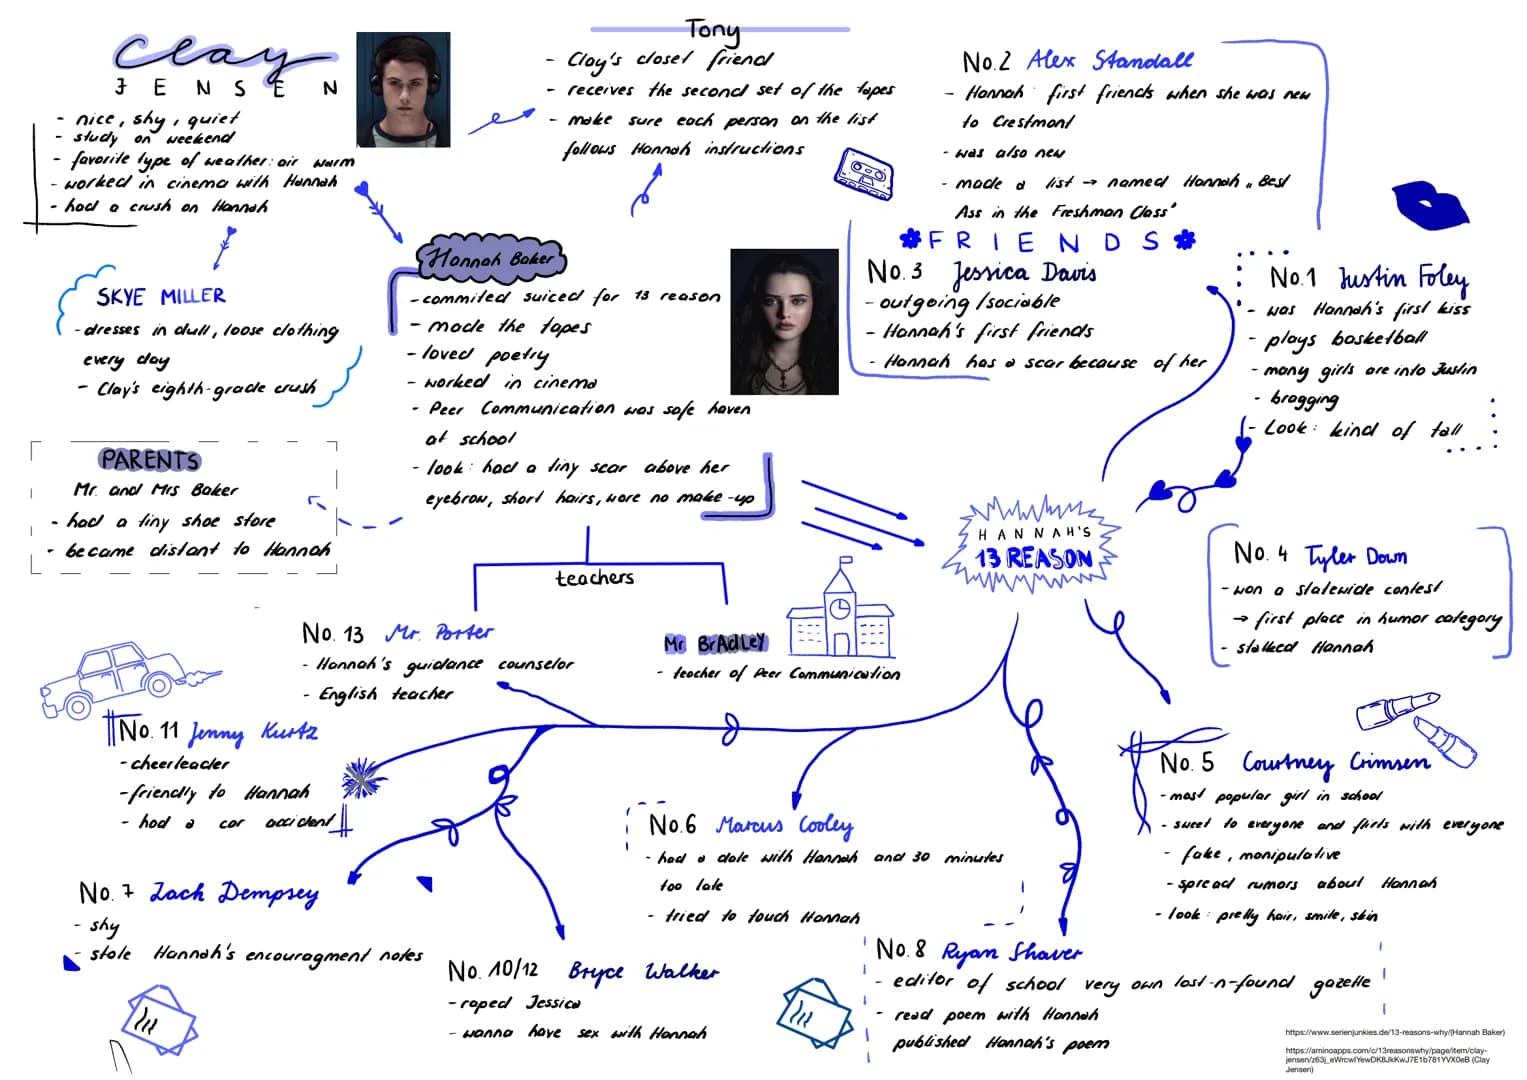 Clay
JENSEN
- nice, shy, quiet
- study on weekend
- favorite type of weather: air warm
- worked in cinema with Hannah
- had a crush on Hannah
Tony
- Clay's closet friend
- receives the second set of the tapes
- make sure each person on the list
follows Hannah instructions
No.2 Alex Standall
- Hannah first friends when she was new
to Crestmont
- was also new
- made a list → named Hannah „Best
Ass in the Freshman Class"
FRIENDS
No.3 Jessica Davis
- outgoing /sociable
- Hannah's first friends
- Hannah has a scar because of her
No.1 Justin Foley
- was Hannah's first kiss
- plays basketball
- many girls are into Justin
- bragging
- Look: kind of tall
Hannah Baker
- commited suiced for 13 reason
- made the tapes
- loved poetry
- worked in cinema
- Peer Communication was safe haven
at school
- look: had a tiny scar above her
eyebrow, short hairs, wore no make-up
SKYE MILLER
- dresses in dull, loose clothing
every day
- Clay's eighth-grade crush
PARENTS
Mr. and Mrs Baker
- had a tiny shoe store
- became distant to Hannah
HANNAH'S
13 REASON
teachers
No. 13 Mr. Porter
- Hannah's guidance counselor
- English teacher
Mr BrAdLEY
- teacher of Peer Communication
No. 4 Tyler Down
- won a statewide contest
→ first place in humor category
- stalked Hannah
No. 11 Jenny Kurtz
- cheerleader
- friendly to Hannah
- had a car accident
No. 5 Courtney Crimsen
- most popular girl in school
- sweet to everyone and flirts with everyone
- fake, manipulative
- spread rumors about Hannah
- look: pretty hair, smile, skin
No.6 Marcus Cooley
- had a date with Hannah and 30 minutes
too late
- tried to touch Hannah
No. 7 Zach Dempsey
- shy
- stole Hannah's encouragment notes
No. 10/12 Bryce Walker
- raped Jessica
- wanna have sex with Hannah
No. 8 Ryan Shaver
- editor of school very own lost-n-found gazette
- read poem with Hannah
published Hannah's poem
https://www.serienjunkies.de/13-reasons-why/(Hannah Baker)
https://aminoapps.com/c/13reasonswhy/page/item/clay-
jensen/z63j_eWrcwIYewDK8JkKwJ7E1b781YVX0eB (Clay
Jensen)